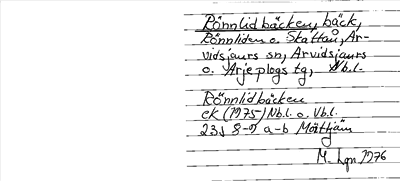 Rönnlidbäcken, bäck,
Rönnliden o. Skättån, Ar-
vidsjaurs sn, Arvidsjaurs
o. Arjeplogs tg, Nb.l.
Rönnlidbäcken
ek (1975) Nb.l. o. Vb.l.
23J 8-9 a-b Mörttjärn
M. Lgn 1976